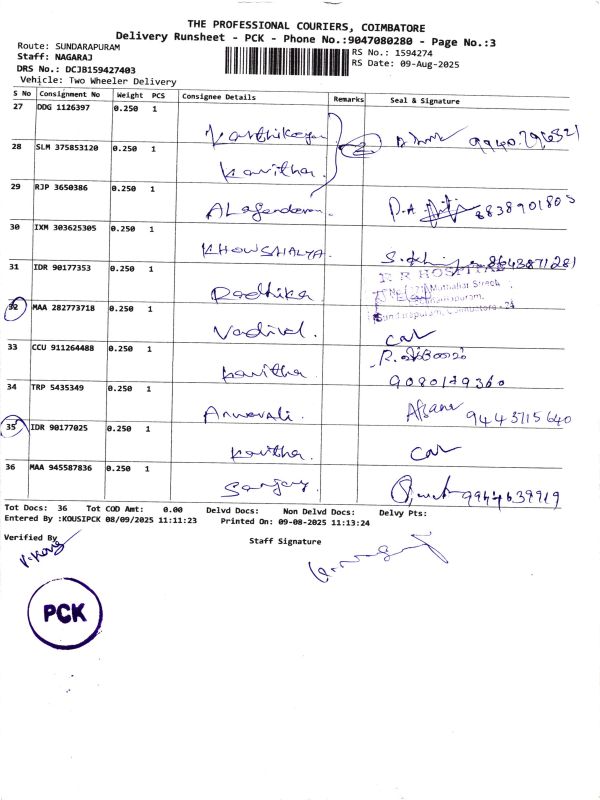 THE PROFESSIONAL COURIERS, COIMBATORE
Delivery Runsheet - PCK - Phone No.:9047080280 - Page No.:3
Route: SUNDARAPURAM
RS No.: 1594274
Staff: NAGARAJ
RS Date: 09-Aug-2025
DRS No.: DCJB159427403
Vehicle: Two Wheeler Delivery
S No Consignment No Weight PCS Consignee Details Remarks Seal & Signature
27 DDG 1126397 0.250 1
Karthikeyan
28 SLM 375853120 0.250 1
Kavitha.
29 RJP 3650386 0.250 1
8838901805
30 IXM 303625305 0.250 1
KHOWSHALYA.
8643871281
31 IDR 90177353 0.250 1
R R HOSPITAL
Radhika
Sundarapuram, Coimbatore - 24
32 MAA 282773718 0.250 1
Vadivel.
33 CCU 911264488 0.250 1
Kavitha.
9080179360
34 TRP 5435349 0.250 1
Anwarali.
Afsana 9443715640
35 IDR 90177025 0.250 1
Kavitha.
36 MAA 945587836 0.250 1
Sanjay.
9944639919
Tot Docs: 36 Tot COD Amt: 0.00 Delvd Docs: Non Delvd Docs: Delvy Pts:
Entered By :KOUSIPCK 08/09/2025 11:11:23 Printed On: 09-08-2025 11:13:24
Verified By
Staff Signature
PCK